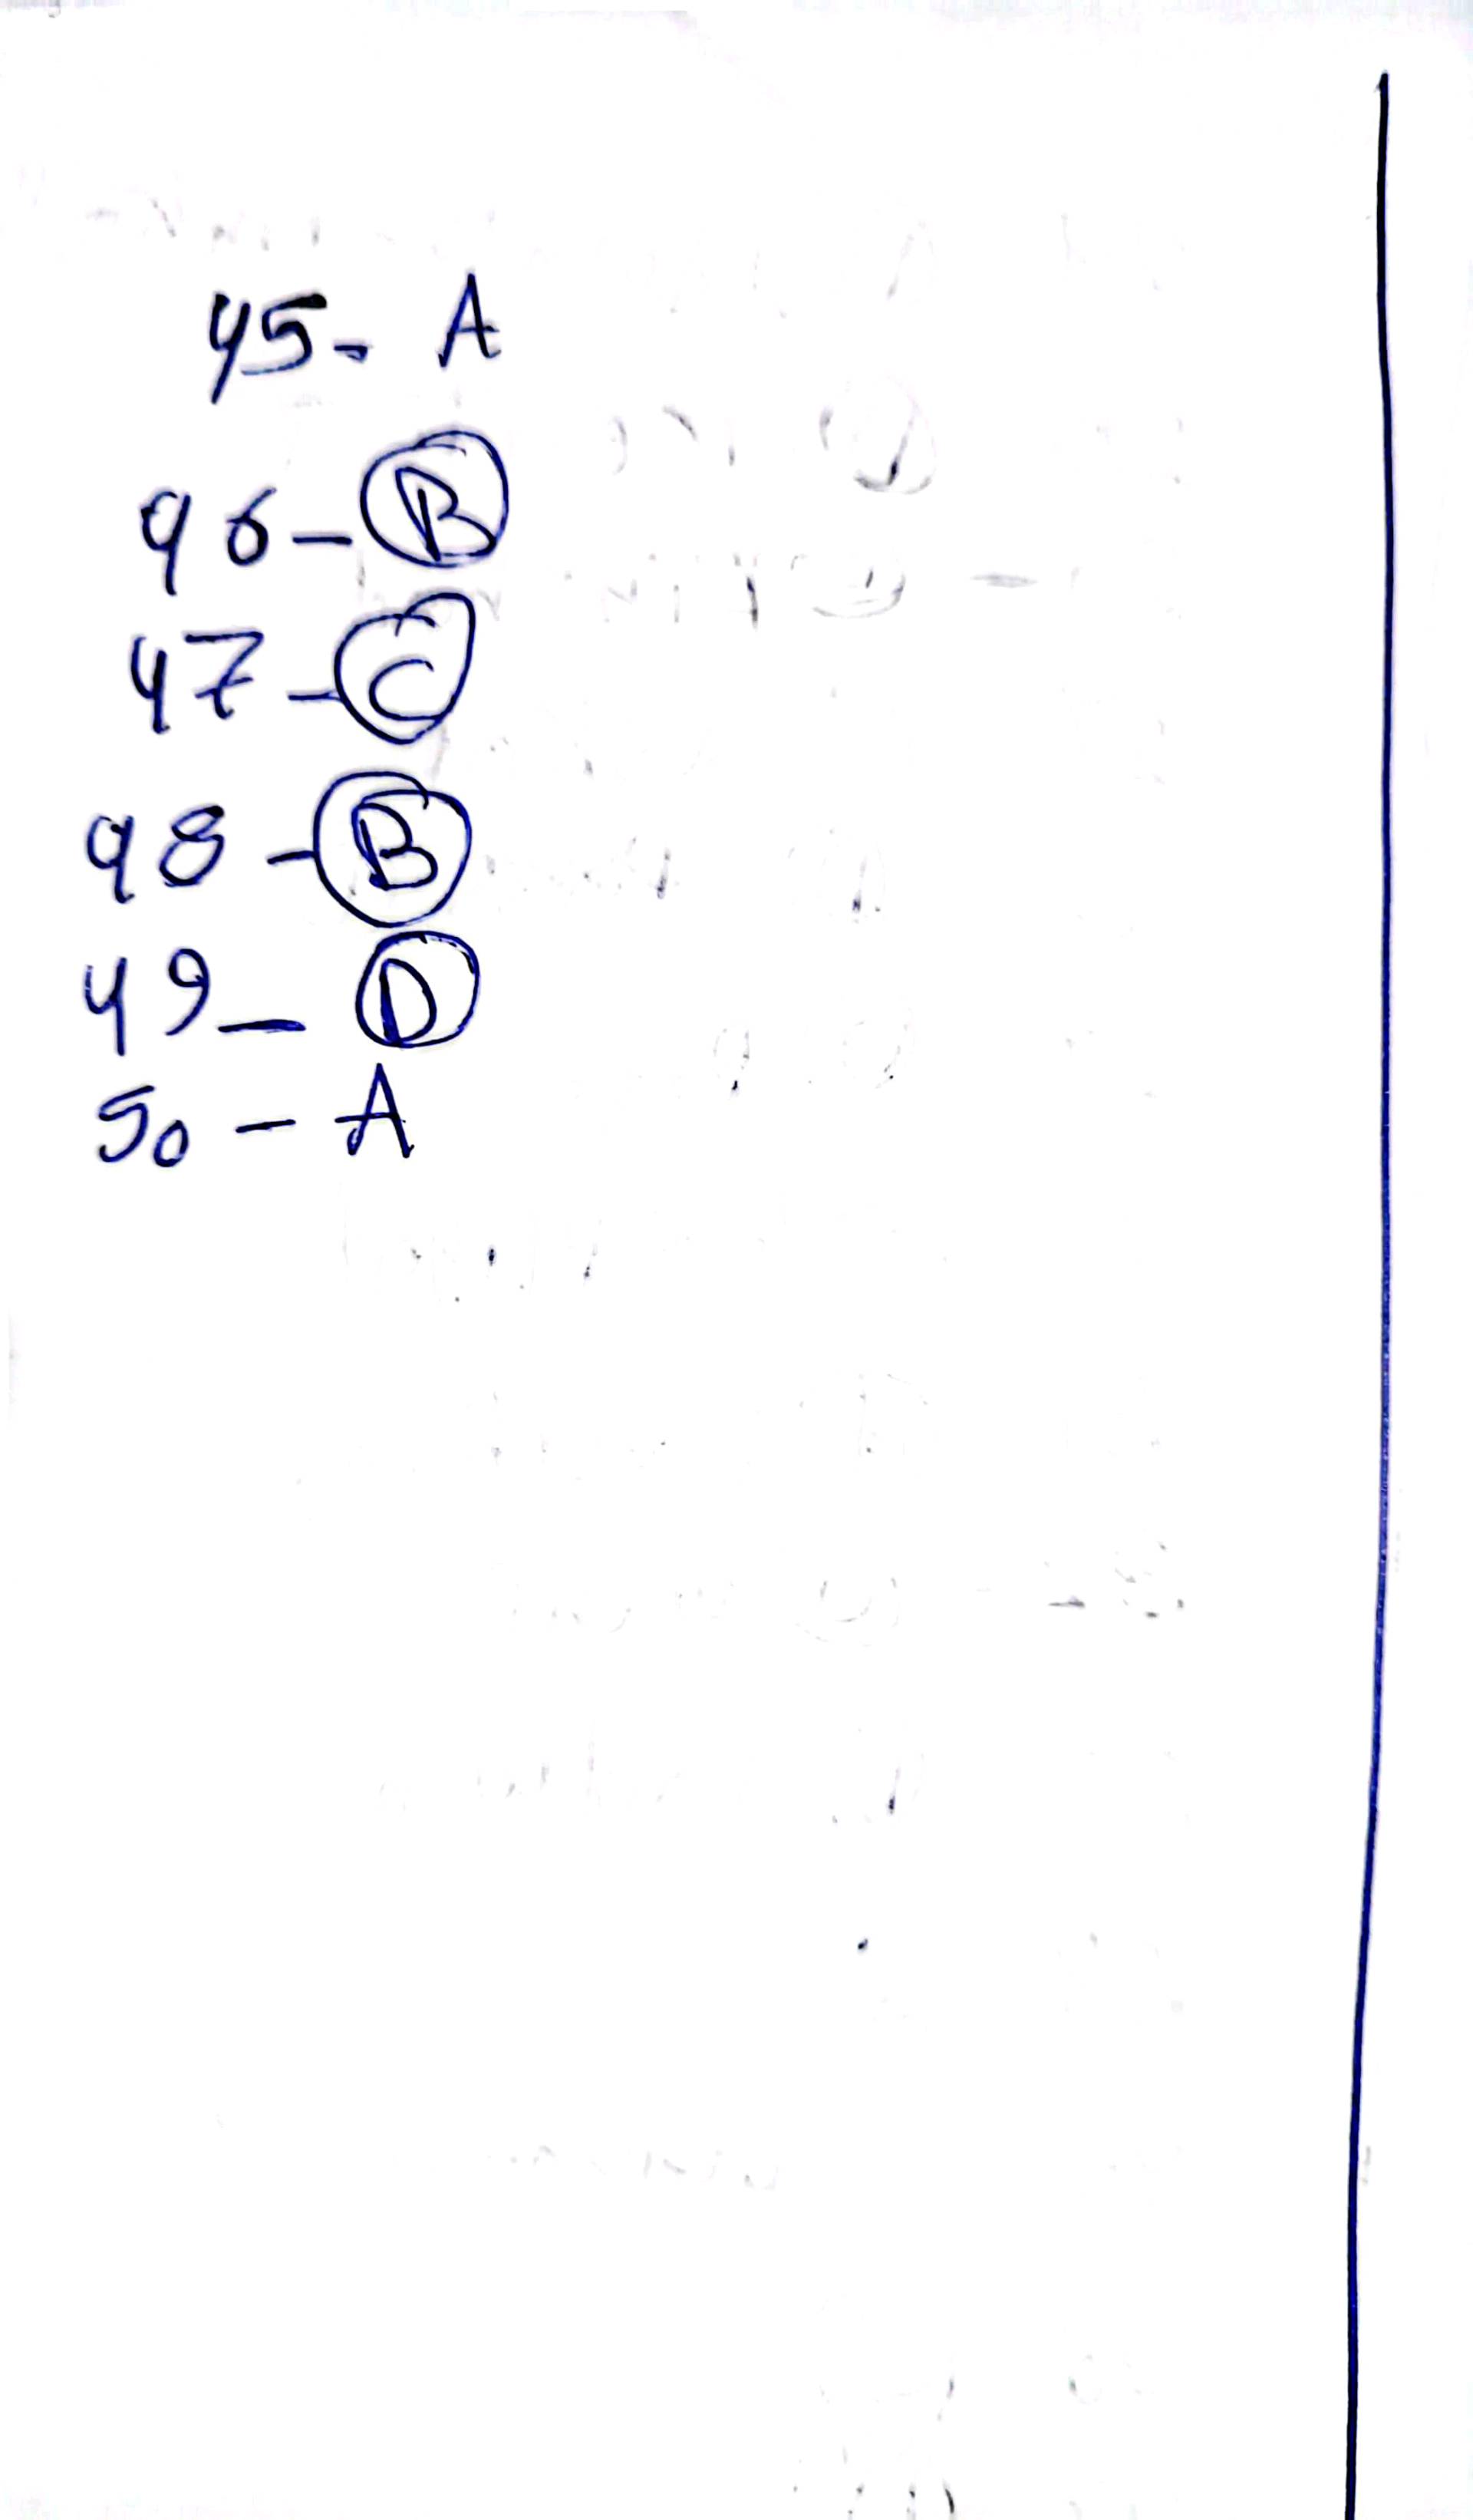 45- A
46- B
47- C
48- B
49- D
50- A